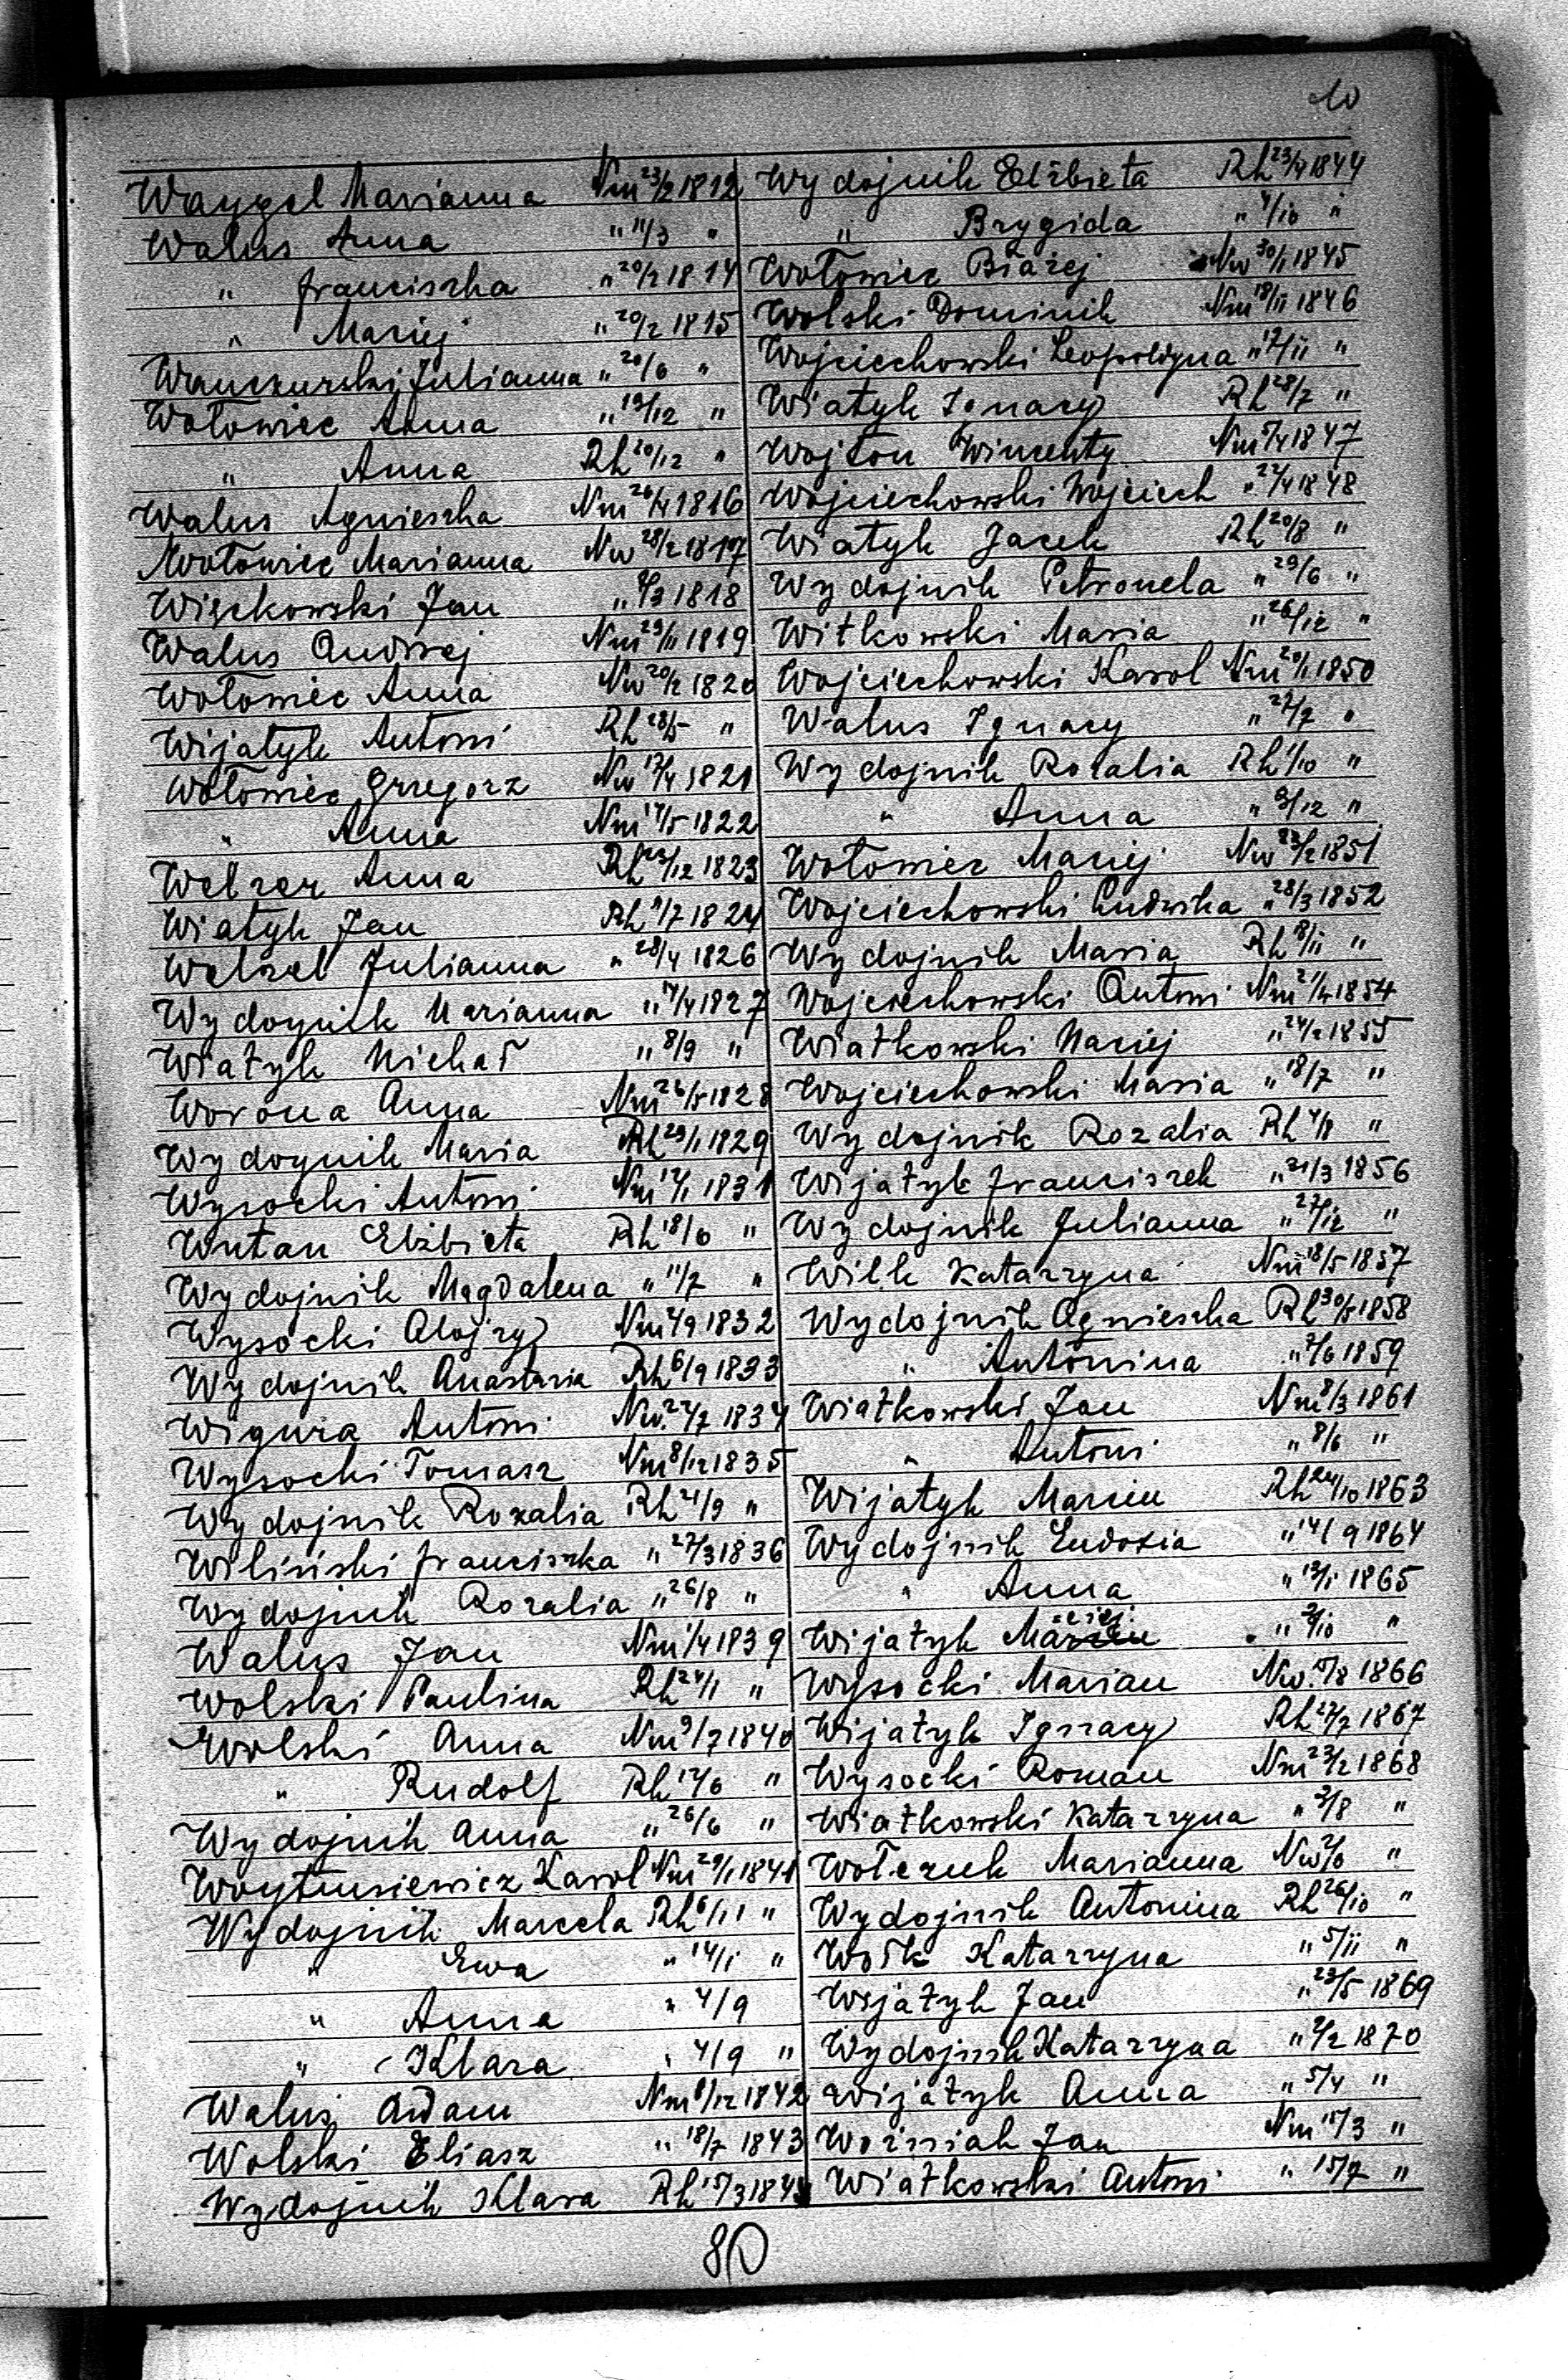 10
Waygel Marianna Nm 23/2 1812
Walus Anna " 11/3 "
" Franciszka " 20/2 1814
" Maciej " 20/2 1815
Julianna " 20/6 "
Wołowiec Anna " 19/12 "
" Anna Rh 20/12 "
Walus Agnieszka Nm 20/4 1816
Wołowiec Marianna Nw 28/2 1817
Jan 1818
Walus Andrzej Nm 29/11 1819
Wołowiec Anna Nw 20/2 1820
Wijatyk Antoni Rh 28/5 "
Wołowiec Grzegorz Nw 12/4 1821
" Anna Nm 17/5 1822
Welzer Anna Rh 1823
Wiatyk Jan Rh 1/7 1824
Welzel Julianna " 28/4 1826
Wydoynik Marianna " 17/4 1827
Wiatyk Michał " 8/9 "
Worona Anna Nm 26/5 1828
Wydoynik Maria Rh 29/1 1829
Wysocki Antoni Nm 1831
Wutan Elżbieta Rh 18/6 "
Wydojnik Magdalena " 11/7 "
Wysocki Alojzy Nm 4/9 1832
Wydojnik Anastazia Rh 6/9 1833
Wigura Antoni Nw. 22/7 1834
Wysocki Tomasz Nm 8/12 1835
Wydojnik Rozalia Rh 4/9 "
Wiliński Franciszka " 27/3 1836
Wydojnik Rozalia " 26/8 "
Walus Jan Nm 1/4 1839
Wolski Paulina Rh 24/1 "
Wolski Anna Nm 9/7 1840
" Rudolf Rh 17/6 "
Wydojnik Anna " 26/6 "
Woytusiewicz Karol Nm 29/1 1841
Wydojnik Marcela Rh 6/11 "
" Ewa " 14/1 "
" Anna " 4/9
" Klara " 4/9 "
Walus Adam Nm 8/12 1842
Wolski Eliasz " 18/7 1843
Wydojnik Klara Rh 15/3 1844
Wydojnik Elżbieta Rh 23/4 1844
" Brygida " 4/10 "
Wołowiec Błażej Nw 30/1 1845
Wolski Dominik Nm 18/11 1846
Wojciechowski Leopoldyna " 17/11 "
Wiatyk Ignacy Rh 28/7 "
Wojton Wincenty Nm 5/4 1847
Wojciechowski Wojciech " 22/4 1848
Wiatyk Jacek Rh 20/8 "
Wydojnik Petronela " 29/6 "
Witkowski Maria " 26/12 "
Wojciechowski Karol Nm 20/1 1850
Walus Ignacy " 27/7 "
Wydojnik Rozalia Rh 1/10 "
" Anna " 9/12 "
Wołowiec Maciej Nw 23/2 1851
Wojciechowski Ludwika " 28/3 1852
Wydojnik Maria Rh 18/11 "
Wojciechowski Antoni Nm 21/4 1854
Wiatkowski Maciej " 24/2 1855
Wojciechowski Maria " 18/7 "
Wydojnik Rozalia Rh 4/8 "
Wijatyk Franciszek " 21/3 1856
Wydojnik Julianna " 27/12 "
Wilk Katarzyna Nm 18/5 1857
Wydojnik Agnieszka Rh 30/8 1858
" Antonina " 7/6 1859
Wiatkowski Jan Nm 8/3 1861
" Antoni " 8/6 "
Wijatyk Marcin Rh 24/10 1863
Wydojnik Eudoxia " 14/9 1864
" Anna " 13/1 1865
Wijatyk Maciej " 2/10 "
Wysocki Marian Nw. 5/8 1866
Wijatyk Ignacy Rh 27/7 1867
Wysocki Roman Nm 23/2 1868
Wiatkowski Katarzyna " 2/8 "
Marianna Nw "
Wydojnik Antonina Rh 26/10 "
Wołk Katarzyna " 5/11 "
Wijatyk Jan " 23/5 1869
Wydojnik Katarzyna " 2/2 1870
Wijatyk Anna " 5/4 "
Woźniak Jan Nm 15/3 "
Wiatkowski Antoni " 15/7 "
80